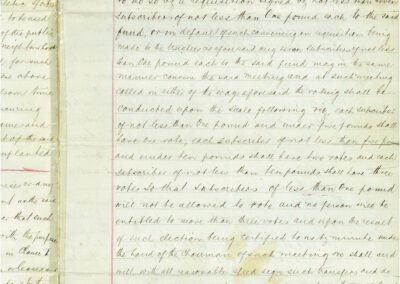 to do so by a requisition signed by not less than seven
subscribers of not less than One pound each to the said
fund, or in default of such convening on requisition being
made to the trustees as aforesaid any seven subscribers of not less
than One pound each to the said fund may in the same
manner convene the said meeting and at such meeting
called in either of the ways aforesaid the voting shall be
conducted upon the scale following viz each subscriber
of not less than One pound and under five pounds shall
have one vote, each subscriber of not less than five pounds
and under ten pounds shall have two votes and each
subscriber of not less than ten pounds shall have three
votes so that subscribers of less than One pound
will not be allowed to vote and no person will be
entitled to more than three votes and upon the result
of such election being certified to us by minute under
the hand of the Chairman of such meeting we shall and
will with all reasonable speed sign such transfers and do
to be used
of the public
neighbourhood
for such
above
from time
and
of the said
or any
at the said
or that such
with the purposes
in Clause 1